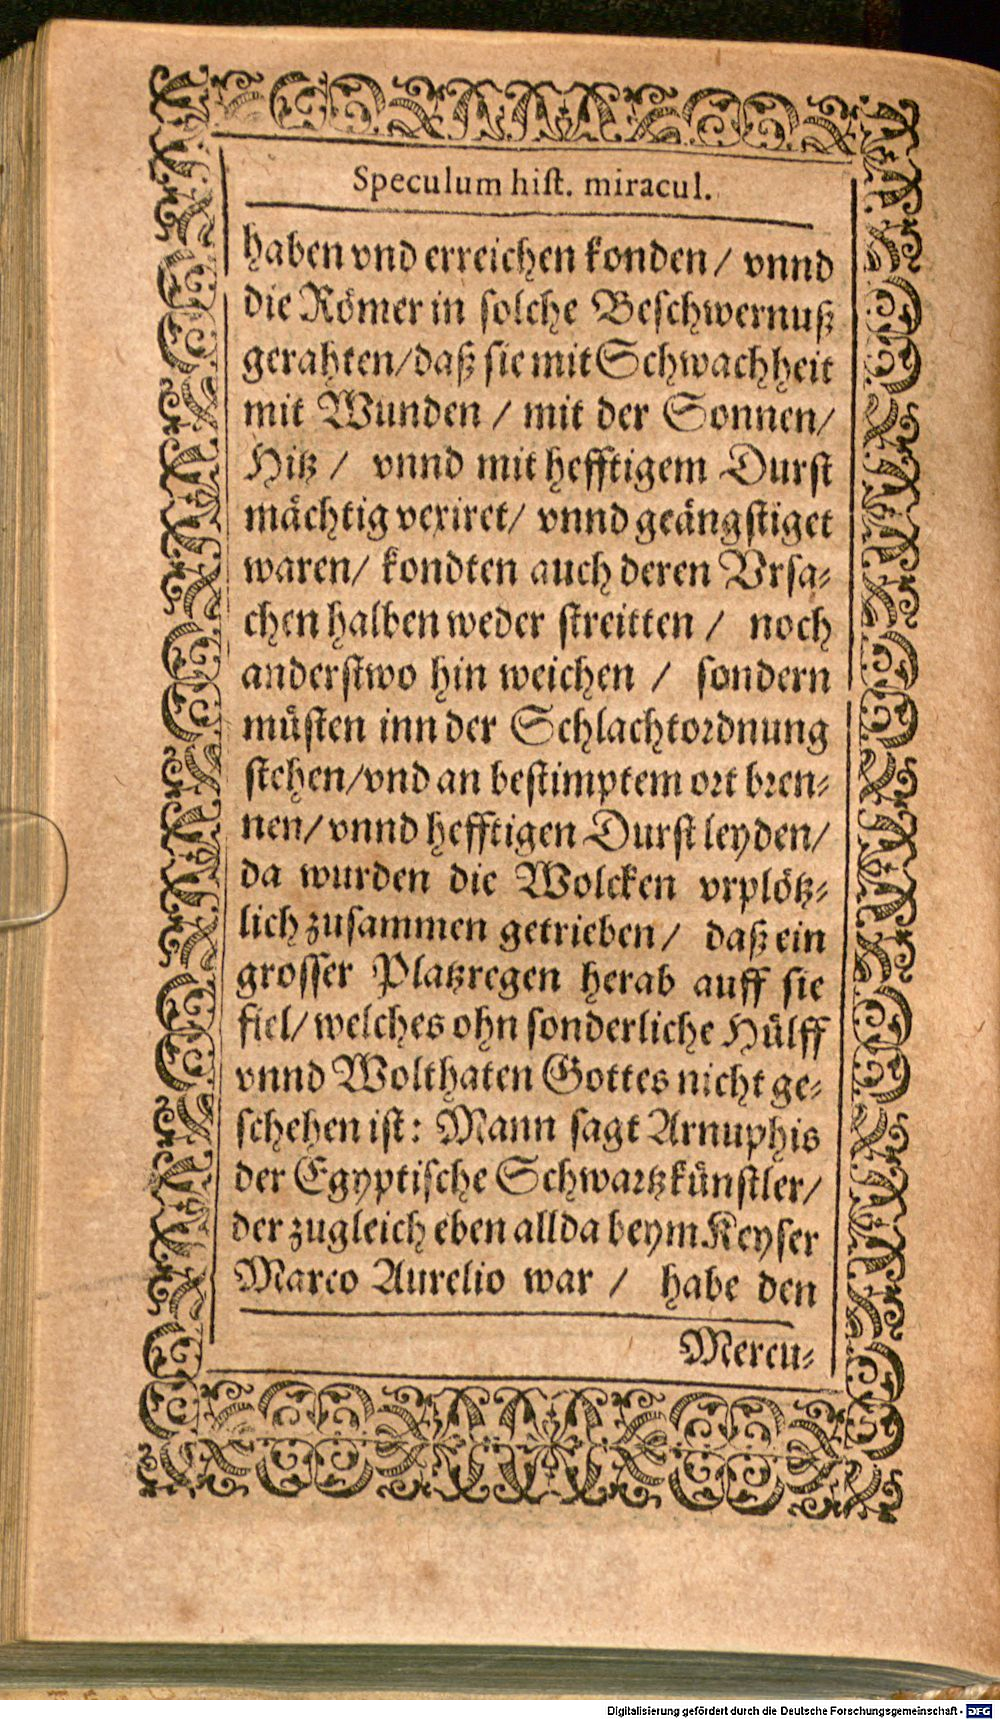 Speculum hist. miracul.
haben vnd erreichen konden / vnnd
die Römer in solche Beschwernuß
gerahten/daß sie mit Schwachheit
mit Wunden / mit der Sonnen/
Hitz / vnnd mit hefftigem Durst
mächtig vexiret/ vnnd geängstiget
waren/ kondten auch deren Vrsa-
chen halben weder streitten / noch
anderstwo hin weichen / sondern
müsten inn der Schlachtordnung
stehen/vnd an bestimptem ort bren-
nen/ vnnd hefftigen Durst leyden/
da wurden die Wolcken vrplötz-
lich zusammen getrieben/ daß ein
grosser Platzregen herab auff sie
fiel/ welches ohn sonderliche Hülff
vnnd Wolthaten Gottes nicht ge-
schehen ist: Mann sagt Arnuphis
der Egyptische Schwartzkünstler/
der zugleich eben allda beym Keyser
Marco Aurelio war / habe den
Mercu-
Digitalisierung gefördert durch die Deutsche Forschungsgemeinschaft - DFG